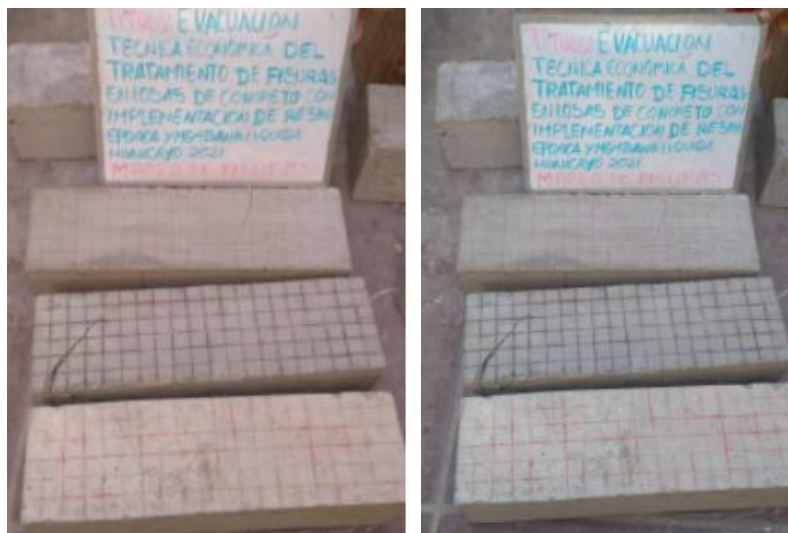 TITULO: EVACUACION
TECNICA ECONOMICA DEL
TRATAMIENTO DE FISURAS
EN LOSAS DE CONCRETO CON
IMPLEMENTACION DE RESINA
EPOXICA Y MEMBRANA LIQUIDA
HUANCAYO 2021
MAPEO DE FISURAS
TITULO: EVACUACION
TECNICA ECONOMICA DEL
TRATAMIENTO DE FISURAS
EN LOSAS DE CONCRETO CON
IMPLEMENTACION DE RESINA
EPOXICA Y MEMBRANA LIQUIDA
HUANCAYO 2021
MAPEO DE FISURAS